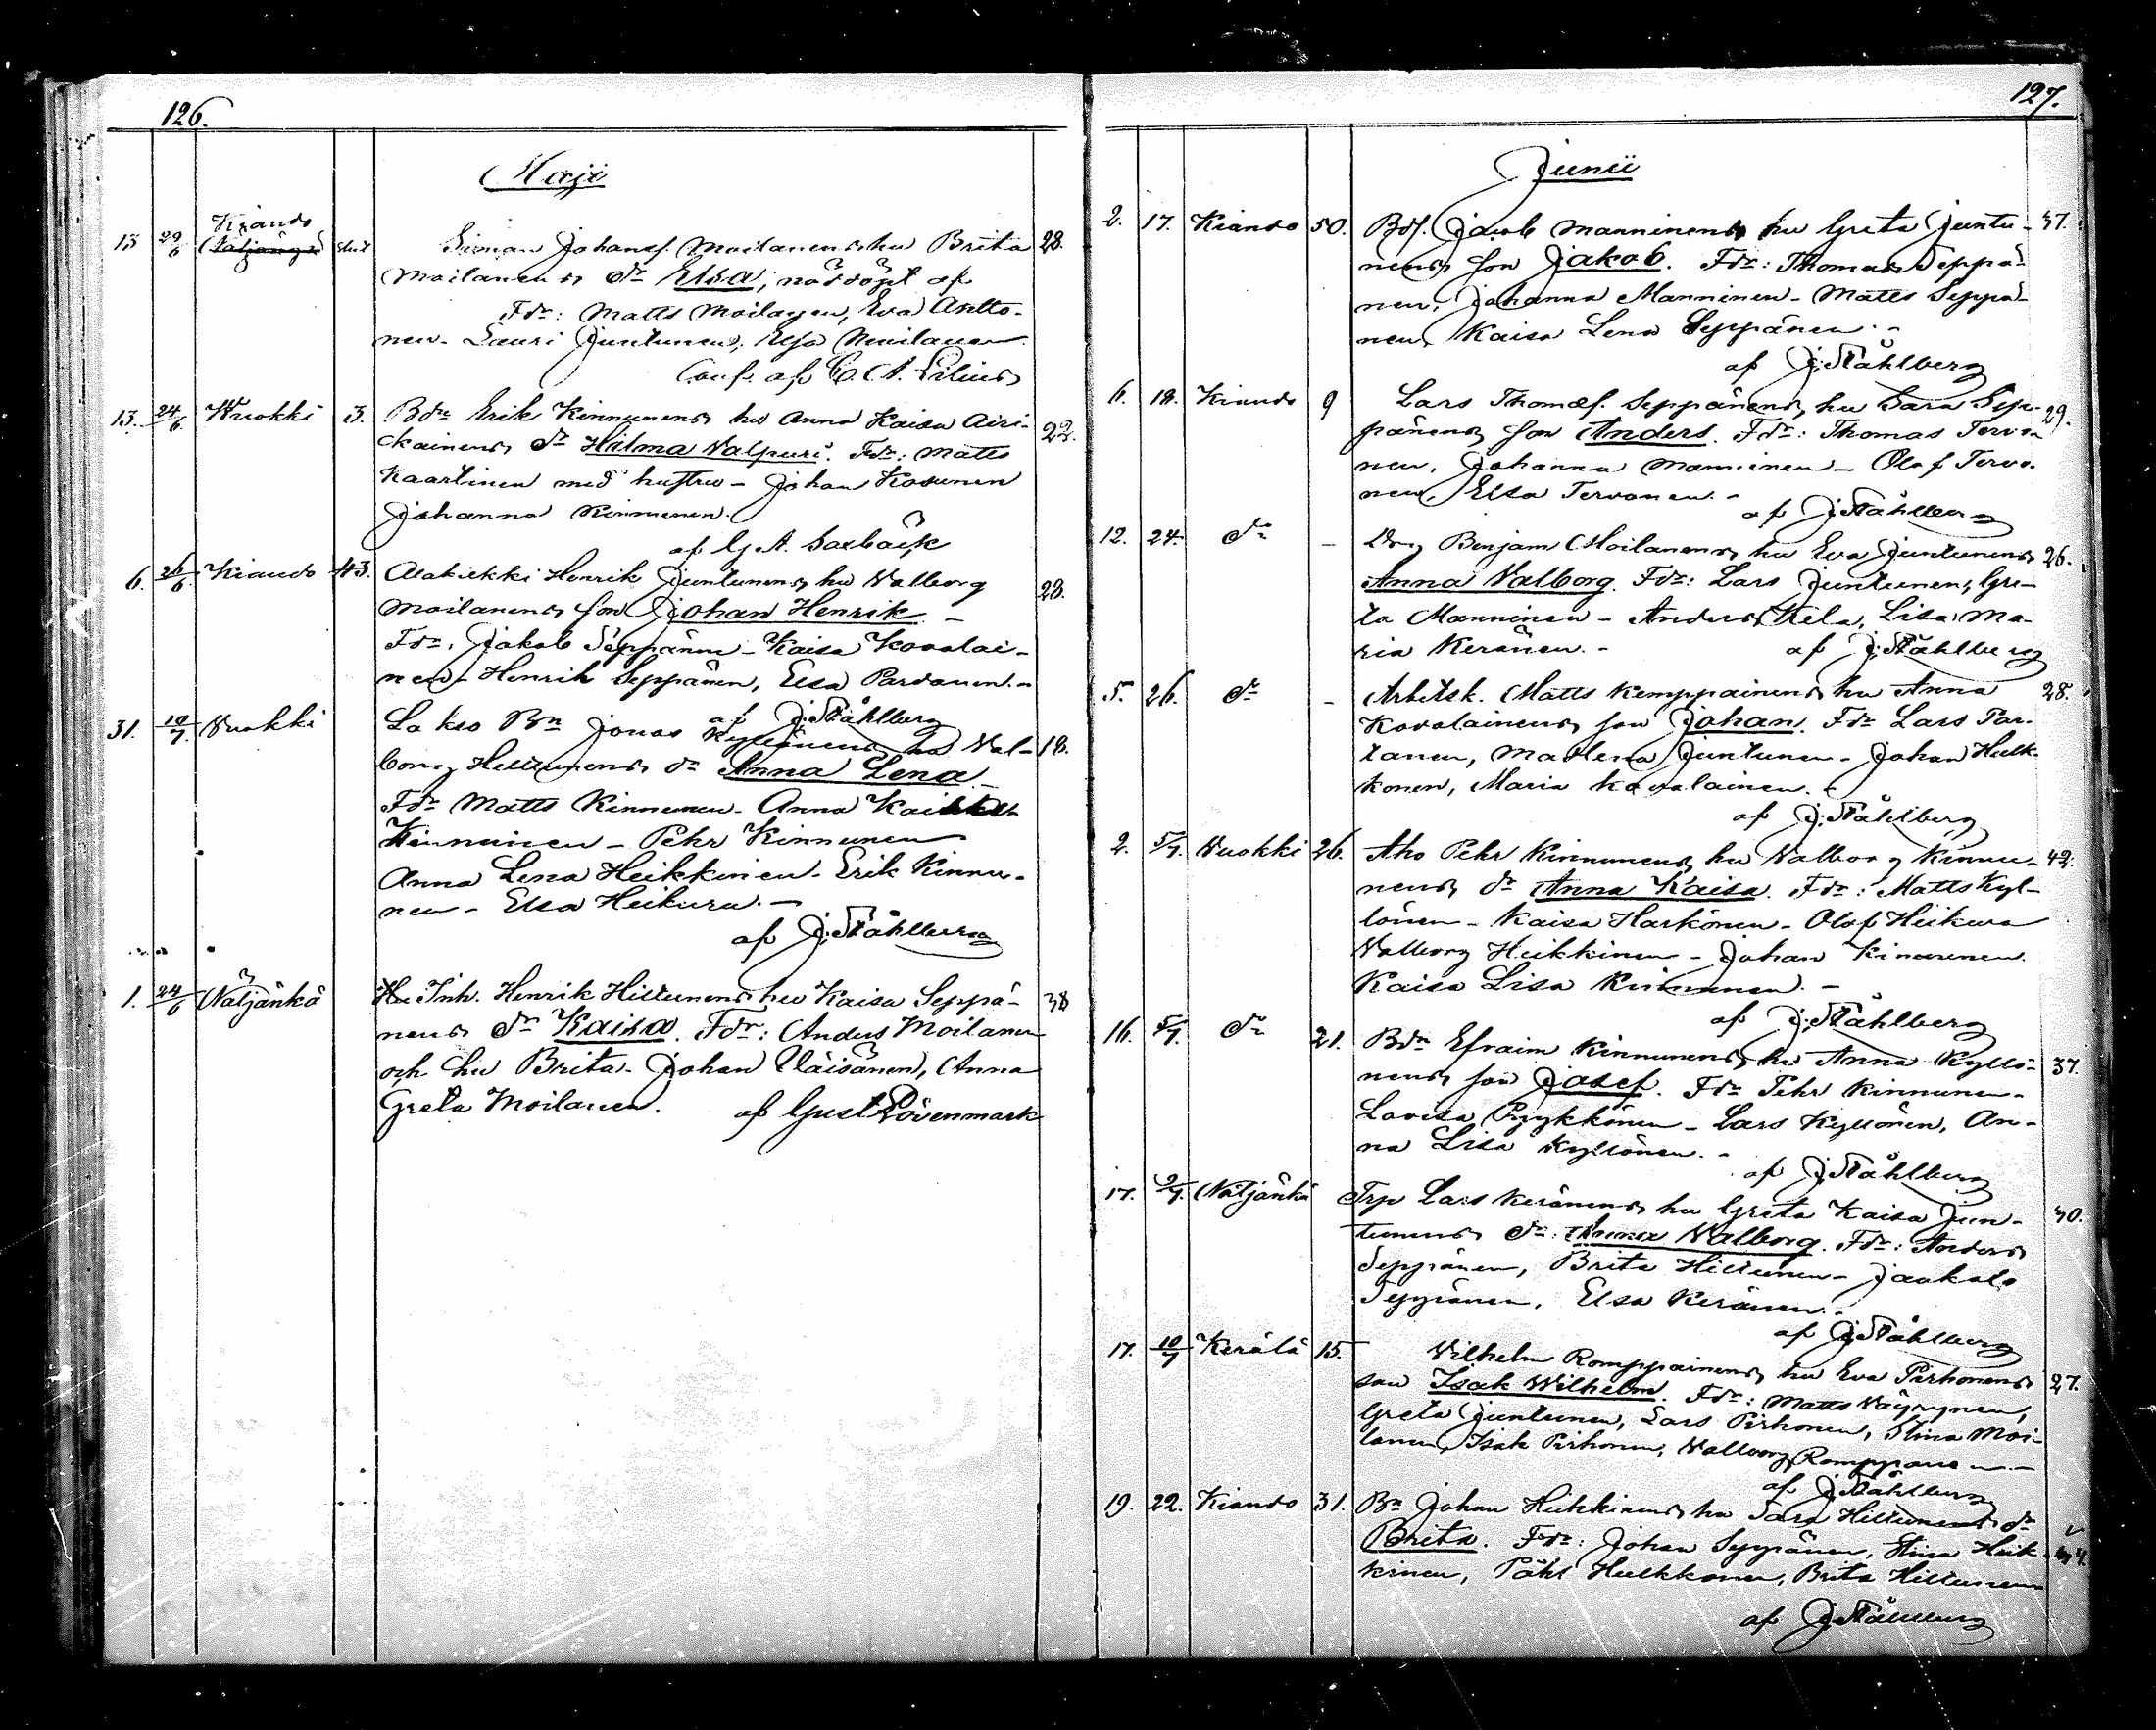 126.
Maji
15 29/6 Kiando Simon Johansf. Moilanens hu Brita 28.
Moilanens dr Elsa, nöddöpt af
Fdr: Matts Moilanen, Eva Antto-
nen - Lauri Juntunen, Elsa Moilanen
Conf. af C. A. Lilius
13. 24/6 Wuokki 3. Bdr Erik Kinnunens hu Anna Kaisa Airi- 22.
ckainens dr Hilma Valpuri. Fdr: Matts
Kaartinen med hustru - Johan Kosunen
Johanna Kinnunen.
af G. A.
6. 26/6 Kiando 43. Alakiekki Henrik Juntunens hu Walborg 28.
Moilanens son Johan Henrik. -
Fdr. Jakob Seppänen - Kaisa Kovalai-
nen - Henrik Seppänen, Elsa Parvanen. -
af J. Ståhlberg
31. 10/7 Wuokki Lakso Bn Jonas Kyllönens hu Wal- 18.
borg Hiltunens dr Anna Lena -
Fdr Matts Kinnunen - Anna
Kinnunen - Pehr Kinnunen
Anna Lena Heikkinen - Erik Kinnu-
nen - Elsa Heikura. -
af J. Ståhlberg
1. 24/6 Näljänkä Inh. Henrik Hiltunens hu Kaisa Seppä- 38
nens dr Kaisa. Fdr: Anders Moilanen
och hu Brita - Johan Väisänen, Anna
Greta Moilanen. af Gust Lövenmark
127.
Junii
2. 17. Kiando 50. Bdf. Jacob Manninens hu Greta Juntu- 37.
nens son Jakob. Fdr: Thomas Seppä-
nen, Johanna Manninen - Matts Seppä-
nen, Kaisa Lena Seppänen. -
af J. Ståhlberg
6. 18. Kiando 9 Lars Thomæf. Seppänens hu Sara Sep- 29.
pänens son Anders. Fdr: Thomas Tervo-
nen, Johanna Manninen - Olof Tervo-
nen, Elsa Tervonen. -
af J. Ståhlberg
12. 24. dr - Drg Benjam Moilanens hu Eva Juntunens 26.
Anna Valborg. Fdr: Lars Juntunen, Gre-
ta Manninen - Anders Kela, Lisa Ma-
ria Keränen. - af J. Ståhlberg
5. 26. dr - Arbetsk. Matts Kemppainens hu Anna 28.
Kovalainens son Johan. Fdr Lars Par-
tanen, Ma Lena Juntunen - Johan Hulk-
konen, Maria Kovalainen. -
af J. Ståhlberg
2. 5/7 Wuokki 26. Aho Pehr Kinnunens hu Walborg Kinnu- 42.
nens dr Anna Kaisa. Fdr: Matts Kyl-
lönen - Kaisa Harkönen - Olof Heikura
Walborg Heikkinen - Johan Kinnunen
Kaisa Lisa Kinnunen. -
af J. Ståhlberg
16. 5/7. dr 21. Bdr Efraim Kinnunens hu Anna Kyllö- 37.
nens son Josef. Fdr Pehr Kinnunen -
Lovisa Pyykkönen - Lars Kyllönen, An-
na Lisa Kyllönen. -
af J. Ståhlberg
17. 9/7. Näljänkä Trp Lars Keränens hu Greta Kaisa Jun- 30.
tunens dr: Anna Walborg. Fdr: Anders
Seppänen, Brita Hiltunen - Jaakob
Seppänen, Elsa Keränen. -
af J. Ståhlberg
17. 10/7 Kerälä 15. Wilhelm Romppainens hu Eva Pirhonens 27.
son Isak Wilhelm. Fdr: Matts Väyrynen,
Greta Juntunen, Lars Pirhonen, Stina Moi-
lanen, Isak Pirhonen, Walborg Romppanen. -
af J. Ståhlberg
19. 22. Kiando 31. Bn Johan Heikkinens hu Sara Hiltunens dr
Brita. Fdr: Johan Seppänen, Stina Heik-
kinen, Påhl Hulkkonen, Brita Hiltunen
af J. Ståhlberg